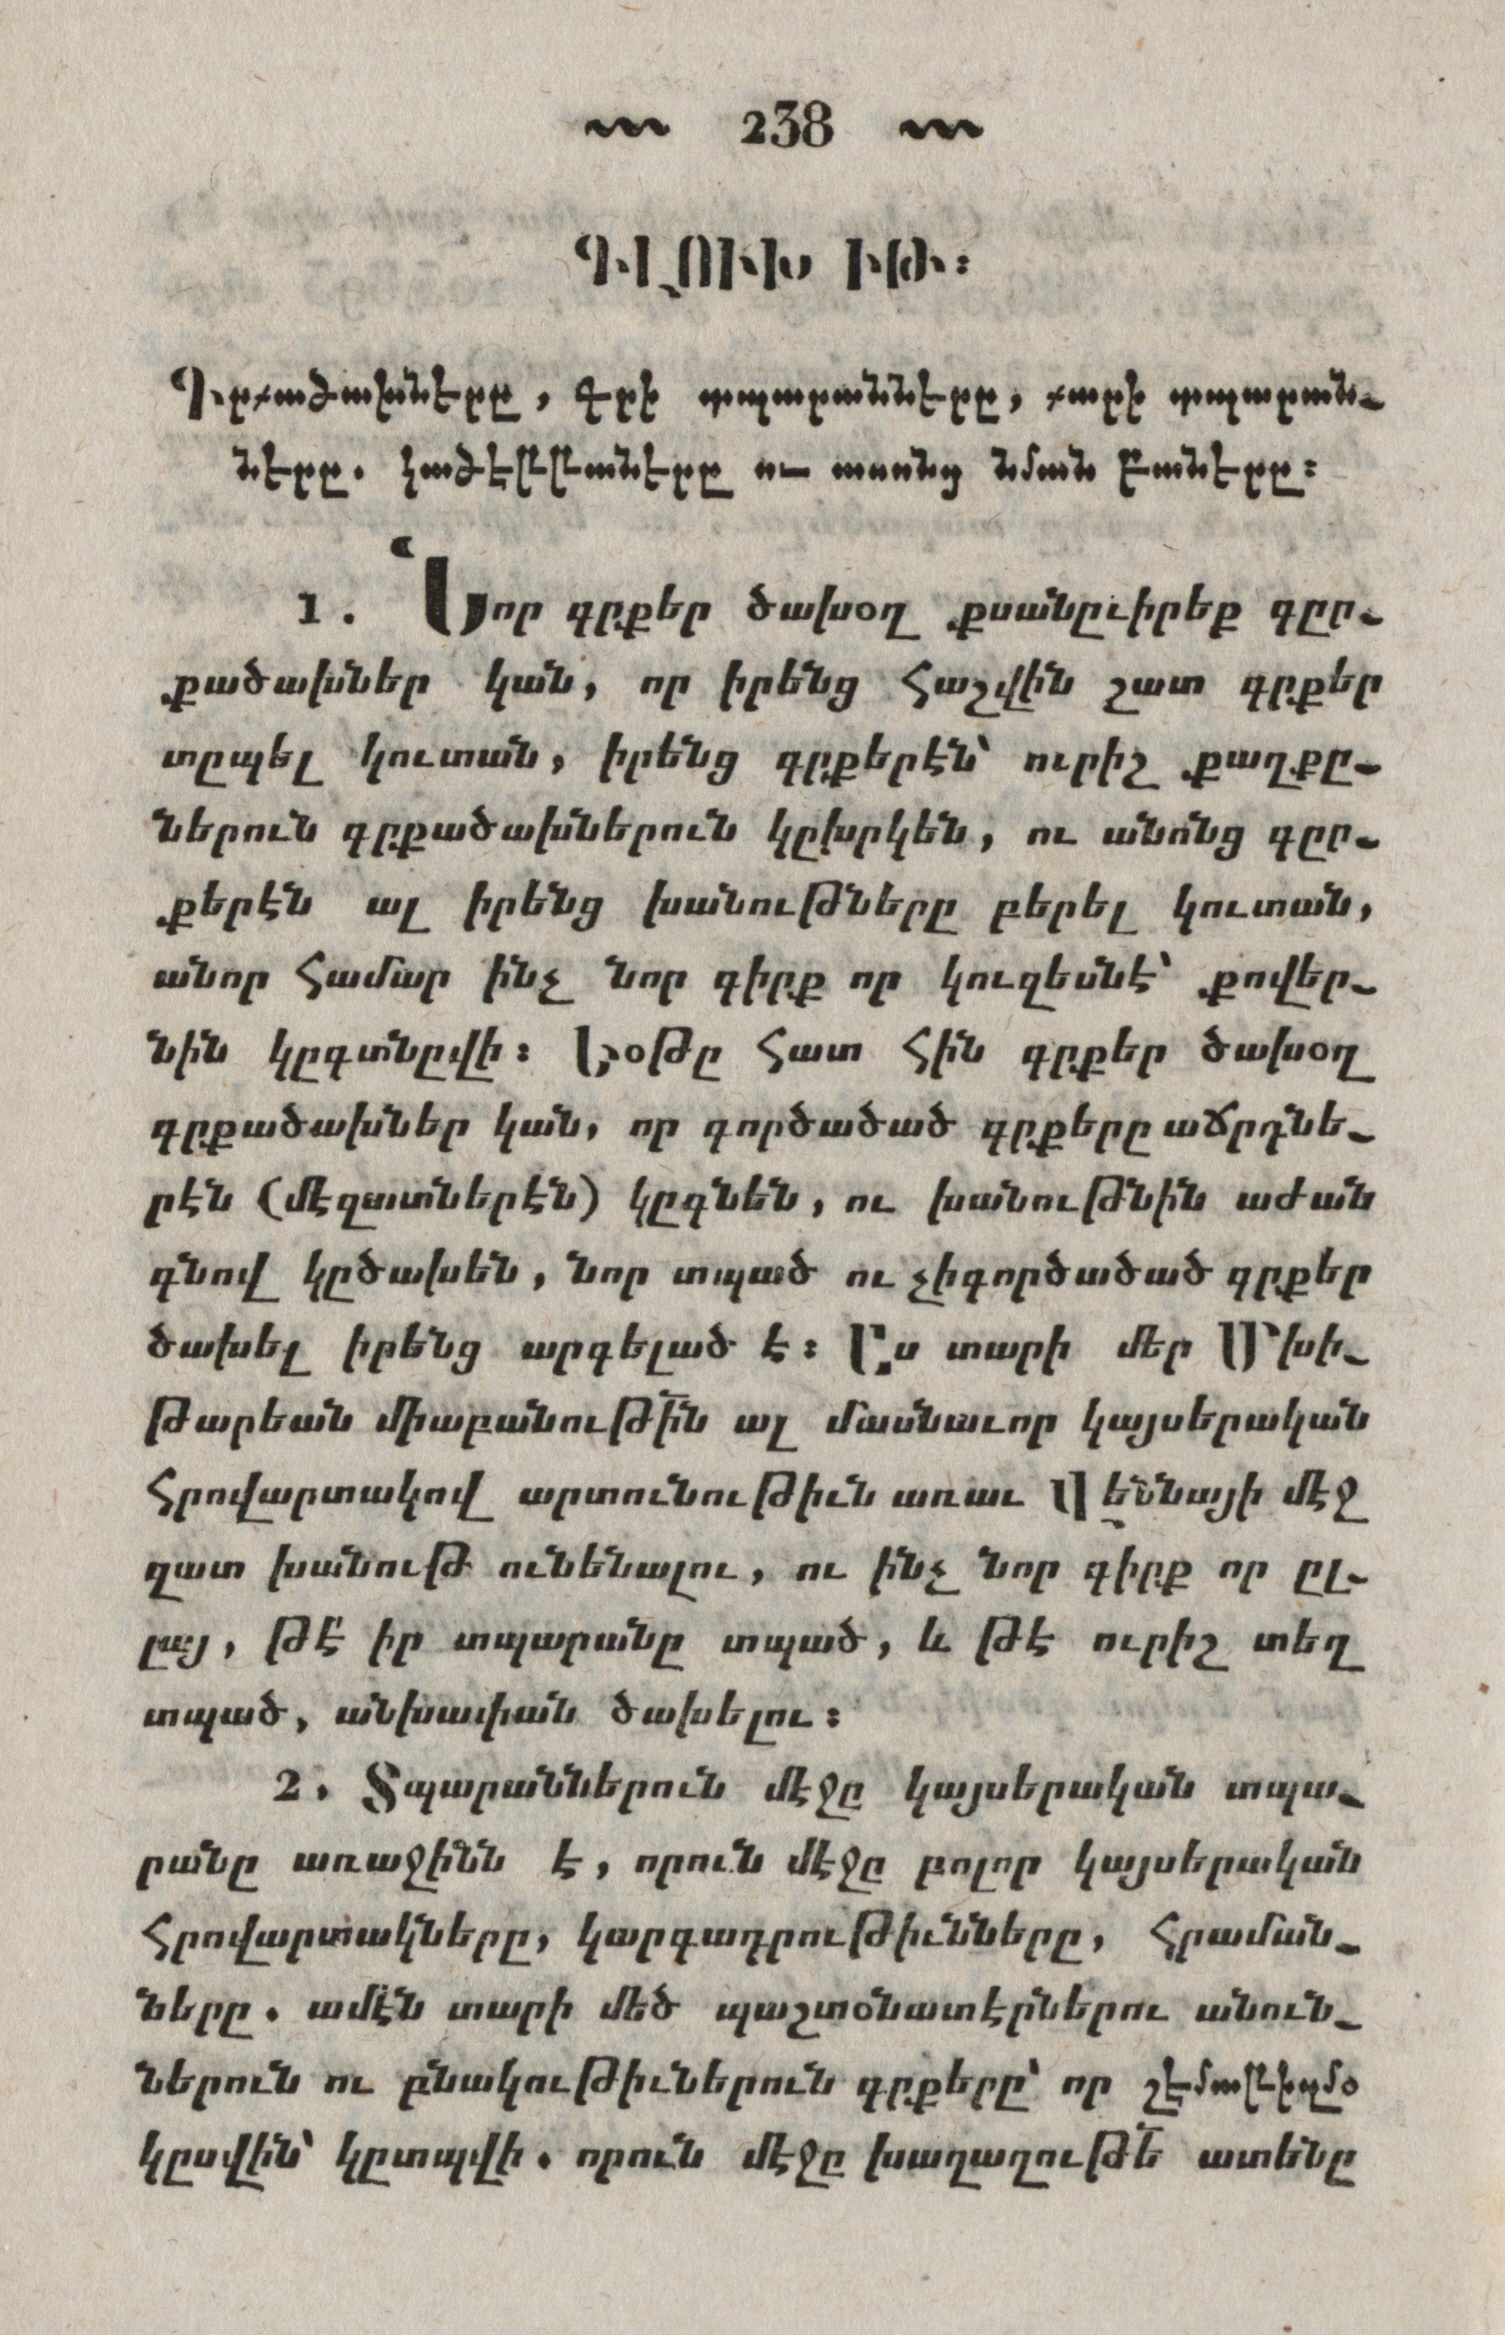 238
ԳԼՈՒԽ ԻԹ։
Գրքածախները, գրի տպարանները, քարի տպարան-
ները. խաժէլլաները ու ասոնց նման բաները։
1. Նոր գրքեր ծախօղ քսանըւիրեք գըր-
քածախներ կան, որ իրենց հաշվին շատ գրքեր
տըպել կուտան, իրենց գրքերէն՝ ուրիշ քաղքը-
ներուն գրքածախներուն կըխրկեն, ու անոնց գըր-
քերէն ալ իրենց խանութները բերել կուտան,
անոր համար ինչ նոր գիրք որ կուզեսնէ՝ քովեր-
նին կըգտնըվի։ Եօթը հատ հին գրքեր ծախօղ
գրքածախներ կան, որ գործածած գրքերը աճրդնե-
րէն (մէզատներէն) կըգնեն, ու խանութնին աժան
գնով կըծախեն, նոր տպած ու չիգործածած գրքեր
ծախել իրենց արգելած է։ Ըս տարի մեր Մխի-
թարեան միաբանութին ալ մասնաւոր կայսերական
հրովարտակով արտունութիւն առաւ Վէննայի մէջ
զատ խանութ ունենալու, ու ինչ նոր գիրք որ ըլ-
լայ, թէ՛ իր տպարանը տպած, և թէ ուրիշ տեղ
տպած, անխափան ծախելու։
2. Տպարաններուն մէջը կայսերական տպա-
րանը առաջինն է, որուն մէջը բոլոր կայսերական
հրովարտակները, կարգադրութիւնները, հրաման-
ները. ամէն տարի մեծ պաշտօնատէրներու անուն-
ներուն ու բնակութիւներուն գրքերը՝ որ շէմալիզմօ
կըսվին՝ կըտպվի. որուն մէջը խաղաղութե ատենը